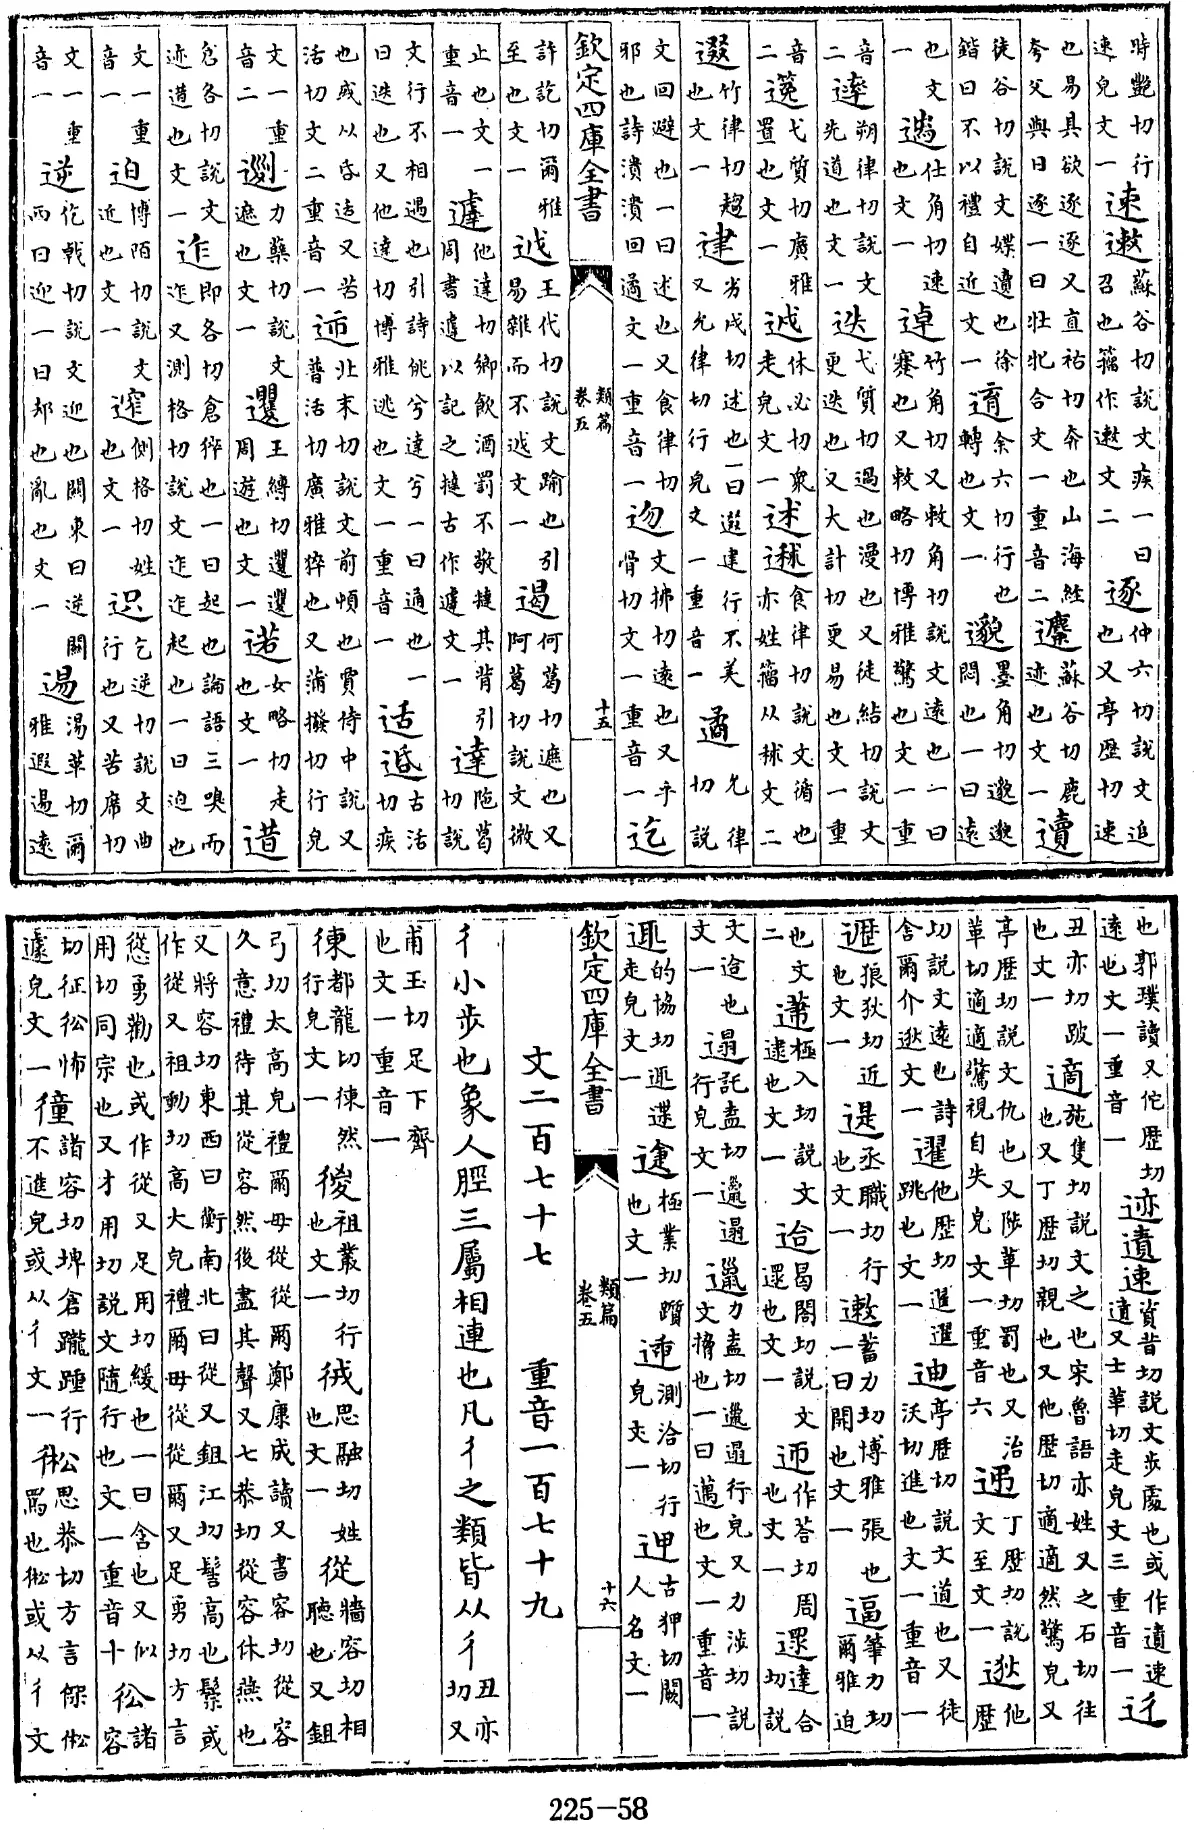 時艷切行速皃文一 速遬 蘇谷切説文疾一曰召也籀作遬文二 逐 仲六切説文追也又亭歷切速
也易其欲逐逐又直祐切奔也山海經夸父與日逐一曰壯牝合文一重音二 蘇谷切鹿迹也文一
徒谷切説文媟也徐鍇曰不以禮自近文一 逳 余六切行也轉也文一 邈 墨角切邈邈悶也一曰遠
也文一 仕角切速也文一 逴 竹角切又敕角切説文遠也一曰蹇也又敕略切博雅驚也文一重
音二 䢦 朔律切説文先道也文一 迭 弋質切過也漫也又徒結切説文更迭也又大計切更易也文一重
音二 弋質切廣雅置也文一 休必切衆走皃文一 述 食律切説文循也亦姓籀从秫文二
竹律切趨也文一 劣戍切述也一曰行不美又允律切行皃文一重音一 遹 允律切説
文回避也一曰述也又食律切邪也詩潰潰回遹文一重音一 文拂切遠也又乎骨切文一重音一 迄
欽定四庫全書 類篇 卷五 十五
許訖切爾雅至也文一 王伐切説文踰也引易雜而不文一 遏 何葛切遮也又阿葛切説文微
止也文一重音一 他達切鄉飲酒罰不敬撻其背引周書以記之撻古作文一 達 陁葛切説
文行不相遇也引詩佻兮達兮一曰通也一曰迭也又他達切博雅逃也文一重音一 适 古活切疾
也或从昏适又苦活切文二重音一 北末切説文前頓也賈侍中説又普活切廣雅猝也又蒲撥切行皃
文一重音二 力蘗切説文遮也文一 王縛切周遊也文一 逽 女略切走也文一 逪
各切説文迹道也文一 迮 即各切倉猝也一曰起也論語三嗅而迮又測格切説文迮迮起也一曰迫也
文一重音一 迫 博陌切説文近也文一 側格切姓也文一 乞逆切説文曲行也又苦席切
文一重音一 逆 仡戟切説文迎也關東曰逆關西曰迎一曰却也亂也文一 逷 湯革切爾雅遐逷遠
也郭璞讀又佗歷切遠也文一重音一 迹速 資昔切説文步處也或作速又士革切走皃文三重音一
丑亦切跛也文一 適 施隻切説文之也宋魯語亦姓又之石切往也又丁歷切親也又他歷切適適然驚皃又
亭歷切説文仇也又陟革切罰也又治革切適適驚視自失皃文一重音六 丁歷切説文至文一 逖 他歷
切説文遠也詩舍爾介逖文一 趯 他歷切躍跳也文一 迪 亭歷切説文道也又徒沃切進也文一重音一
狼狄切近也文一 丞職切行也文一 遬 蓄力切博雅張也一曰開也文一 逼 筆力切爾雅迫
也文二 極入切説文逮也文一 迨 曷閤切説文遝也文一 迊 作荅切周也文一 遝 達合切説
文迨也文一 遢 託盍切邋遢行皃文一 邋 力盍切邋遢行皃又力涉切説文搚也一曰邁也文一重音一
的協切走皃文一 極業切躓也文一 測洽切行皃文一 古狎切闕人名文一
欽定四庫全書 類篇 卷五 十六
文二百七十七 重音一百七十九
彳 小步也象人脛三屬相連也凡彳之類皆从彳 丑亦切又
甫玉切足下齊也文一重音一
徚 都龍切徚然行皃文一 祖叢切行也文一 思融切姓也文一 從 牆容切相聽也又鉏
弓切太高皃禮爾毋從從爾鄭康成讀又書容切從容久意禮待其從容然後盡其聲又七恭切從容休燕也
又將容切東西曰衡南北曰從又鉏江切髻高也鬃或作從又祖動切高大皃禮爾毋從從爾又足勇切方言
慫慂勸也或作從又足用切緩也一曰舍也又似用切同宗也又才用切説文隨行也文一重音十 彸 諸容
切征彸怖遽皃文一 徸 諸容切埤倉躘踵行不進皃或从彳文一 思恭切方言罵也或从彳文
225-58